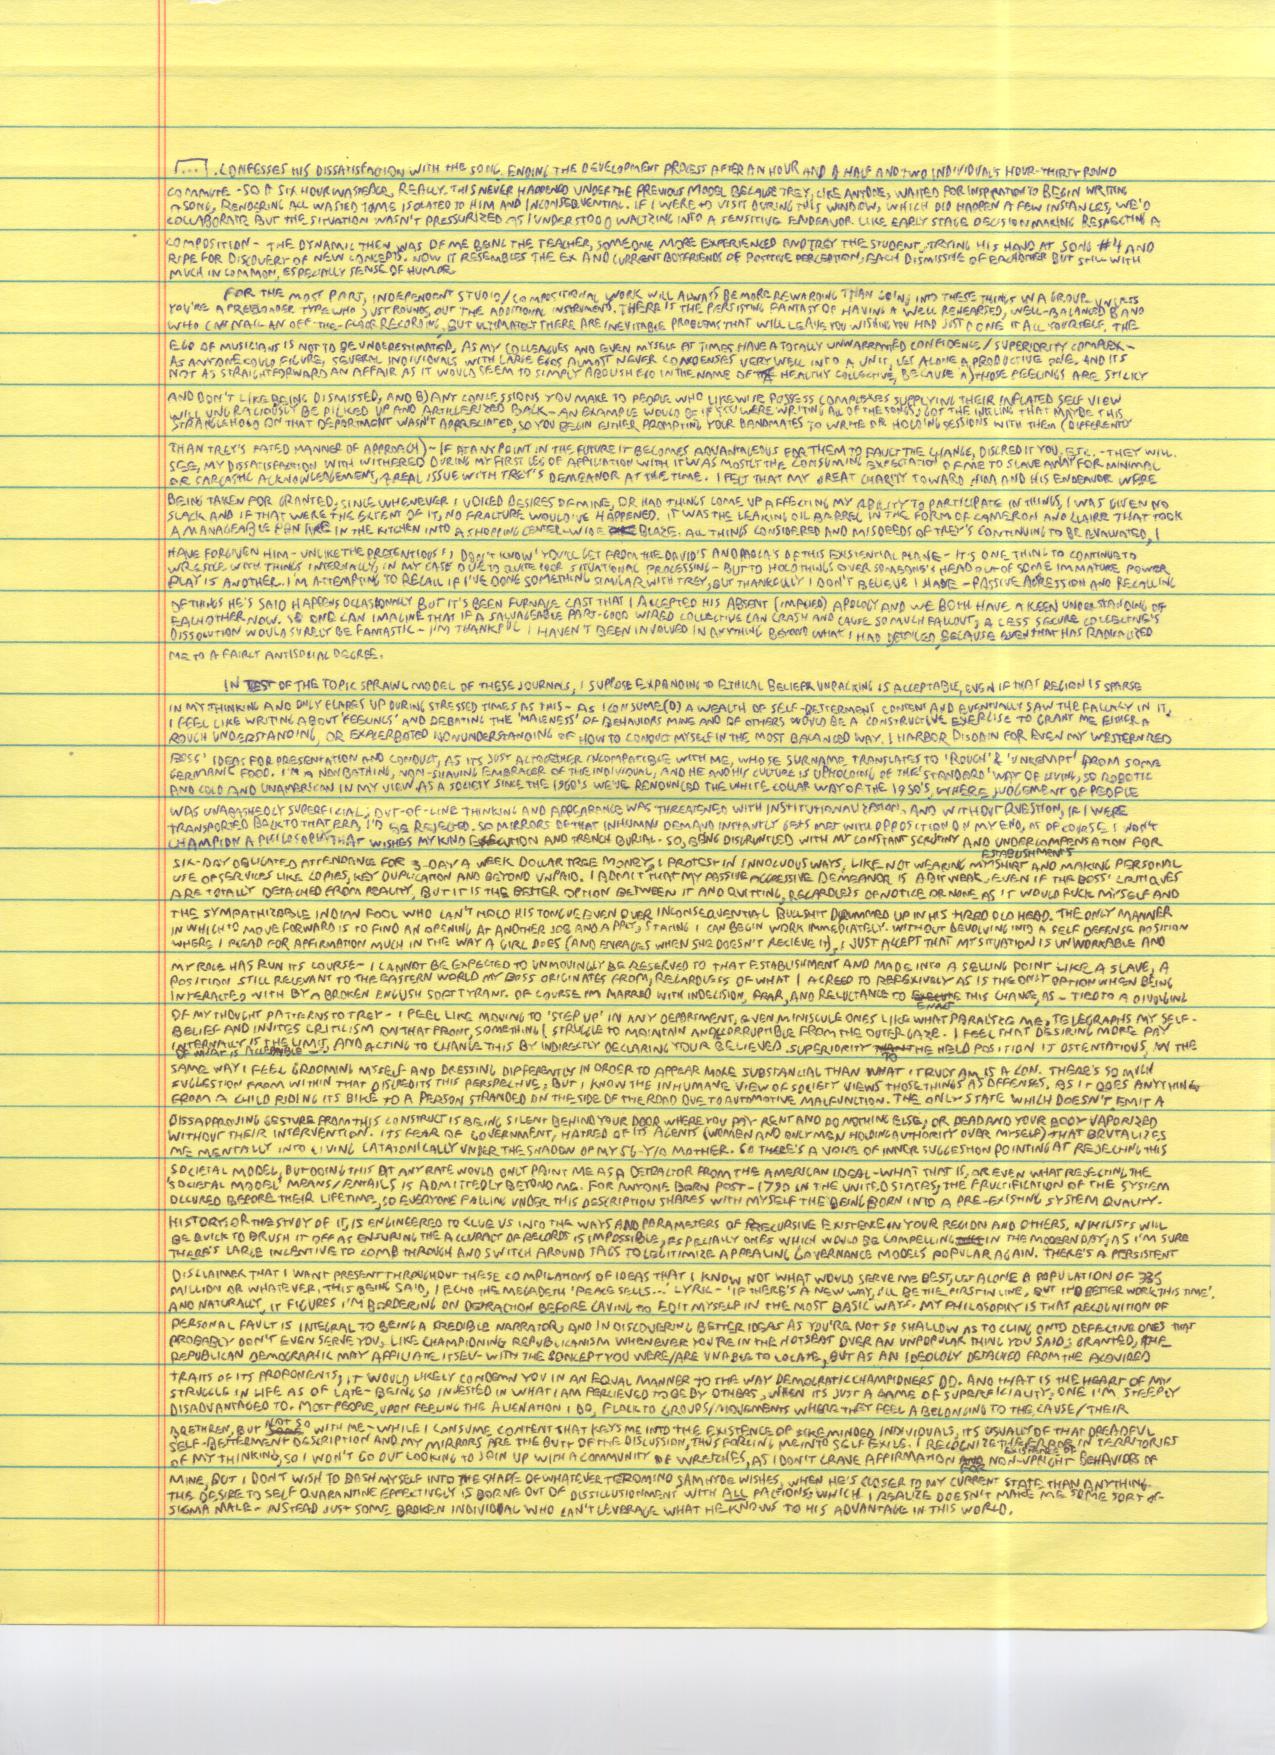 [...]. CONFESSES HIS DISSATISFACTION WITH THE SONG, ENDING THE DEVELOPMENT PROCESS AFTER AN HOUR AND A HALF AND TWO INDIVIDUAL'S HOUR-THIRTY ROUND
COMMUTE - SO A SIX HOUR WASTEAGE, REALLY. THIS NEVER HAPPENED UNDER THE PREVIOUS MODEL BECAUSE TREY, LIKE ANYONE, WAITED FOR INSPIRATION TO BEGIN WRITING
A SONG, RENDERING ALL WASTED TIME ISOLATED TO HIM AND INCONSEQUENTIAL. IF I WERE TO VISIT DURING THIS WINDOW, WHICH DID HAPPEN A FEW INSTANCES, WE'D
COLLABORATE BUT THE SITUATION WASN'T PRESSURIZED AS I UNDERSTOOD WALTZING INTO A SENSITIVE ENDEAVOR LIKE EARLY STAGE DECISION MAKING RESPECTING A
COMPOSITION - THE DYNAMIC THEN WAS OF ME BEING THE TEACHER, SOMEONE MORE EXPERIENCED AND TREY THE STUDENT, TRYING HIS HAND AT SONG #4 AND
RIPE FOR DISCOVERY OF NEW CONCEPTS. NOW IT RESEMBLES THE EX AND CURRENT BOYFRIENDS OF POSITIVE PERCEPTION, EACH DISMISSIVE OF EACHOTHER BUT STILL WITH
MUCH IN COMMON, ESPECIALLY SENSE OF HUMOR.
FOR THE MOST PART, INDEPENDENT STUDIO/COMPOSITIONAL WORK WILL ALWAYS BE MORE REWARDING THAN GOING INTO THESE THINGS IN A GROUP UNLESS
YOU'RE A FREELOADER TYPE WHO JUST ROUNDS OUT THE ADDITIONAL INSTRUMENT. THERE IS THE PERSISTING FANTASY OF HAVING A WELL REHEARSED, WELL-BALANCED BAND
WHO CAN NAIL AN OFF-THE-FLOOR RECORDING, BUT ULTIMATELY THERE ARE INEVITABLE PROBLEMS THAT WILL LEAVE YOU WISHING YOU HAD JUST DONE IT ALL YOURSELF. THE
EGO OF MUSICIANS IS NOT TO BE UNDERESTIMATED, AS MY COLLEAGUES AND EVEN MYSELF AT TIMES HAVE A TOTALLY UNWARRANTED CONFIDENCE/SUPERIORITY COMPLEX -
AS ANYONE COULD FIGURE, SEVERAL INDIVIDUALS WITH LARGE EGOS ALMOST NEVER CONDENSES VERY WELL INTO A UNIT, LET ALONE A PRODUCTIVE ONE, AND ITS
NOT AS STRAIGHTFORWARD AN AFFAIR AS IT WOULD SEEM TO SIMPLY ABOLISH EGO IN THE NAME OF HEALTHY COLLECTIVE, BECAUSE A) THOSE FEELINGS ARE STICKY
AND DON'T LIKE BEING DISMISSED, AND B) ANY CONCESSIONS YOU MAKE TO PEOPLE WHO LIKEWISE POSSESS COMPLEXES SUPPLYING THEIR INFLATED SELF VIEW
WILL UNGRACIOUSLY BE PICKED UP AND ARTILLERIZED BACK - AN EXAMPLE WOULD BE IF YOU WERE WRITING ALL OF THE SONGS, GOT THE INKLING THAT MAYBE THIS
STRANGLEHOLD ON THAT DEPARTMENT WASN'T APPRECIATED, SO YOU BEGIN EITHER PROMPTING YOUR BANDMATES TO WRITE OR HOLDING SESSIONS WITH THEM (DIFFERENTLY
THAN TREY'S FATED MANNER OF APPROACH) - IF AT ANY POINT IN THE FUTURE IT BECOMES ADVANTAGEOUS FOR THEM TO FAULT THE CHANGE, DISCREDIT YOU, ETC. - THEY WILL.
SEE, MY DISSATISFACTION WITH WITHERED DURING MY FIRST LEG OF AFFILIATION WITH IT WAS MOSTLY THE CONSUMING EXPECTATION OF ME TO SLAVE AWAY FOR MINIMAL
OR SARCASTIC ACKNOWLEDGEMENT, A REAL ISSUE WITH TREY'S DEMEANOR AT THE TIME. I FELT THAT MY GREAT CHARITY TOWARD HIM AND HIS ENDEAVOR WERE
BEING TAKEN FOR GRANTED, SINCE WHENEVER I VOICED DESIRES OF MINE, OR HAD THINGS COME UP AFFECTING MY ABILITY TO PARTICIPATE IN THINGS, I WAS GIVEN NO
SLACK AND IF THAT WERE THE EXTENT OF IT, NO FRACTURE WOULD'VE HAPPENED. IT WAS THE LEAKING OIL BARREL IN THE FORM OF CAMERON AND CLAIRE THAT TOOK
A MANAGEABLE FIRE IN THE KITCHEN INTO A SHOPPING CENTER-WIDE BLAZE. ALL THINGS CONSIDERED AND MISDEEDS OF TREY'S CONTINUING TO BE EVALUATED, I
HAVE FORGIVEN HIM - UNLIKE THE PRETENTIOUS 'I DON'T KNOW' YOU'LL GET FROM THE DAVID'S AND PAOLA'S OF THIS EXISTENTIAL PLANE - IT'S ONE THING TO CONTINUE TO
WRESTLE WITH THINGS INTERNALLY, IN MY CASE DUE TO QUITE POOR SITUATIONAL PROCESSING - BUT TO HOLD THINGS OVER SOMEONE'S HEAD OUT OF SOME IMMATURE POWER
PLAY IS ANOTHER. I'M ATTEMPTING TO RECALL IF I'VE DONE SOMETHING SIMILAR WITH TREY, BUT THANKFULLY I DON'T BELIEVE I HAVE - PASSIVE AGRESSION AND RECALLING
OF THINGS HE'S SAID HAPPENS OCCASIONALLY BUT IT'S BEEN FURNACE CAST THAT I ACCEPTED HIS ABSENT (IMPLIED) APOLOGY AND WE BOTH HAVE A KEEN UNDERSTANDING OF
EACHOTHER NOW. SO ONE CAN IMAGINE THAT IF A SALVAGEABLE PART-GOOD WIRED COLLECTIVE CAN CRASH AND CAUSE SO MUCH FALLOUT, A LESS SECURE COLLECTIVE'S
DISSOLUTION WOULD SURELY BE FANTASTIC - I'M THANKFUL I HAVEN'T BEEN INVOLVED IN ANYTHING BEYOND WHAT I HAD DETAILED, BECAUSE EVEN THAT HAS RADICALIZED
ME TO A FAIRLY ANTISOCIAL DEGREE.
IN TEST OF THE TOPIC SPRAWL MODEL OF THESE JOURNALS, I SUPPOSE EXPANDING TO ETHICAL BELIEFS UNPACKING IS ACCEPTABLE, EVEN IF THAT REGION IS SPARSE
IN MY THINKING AND ONLY FLARES UP DURING STRESSED TIMES AS THIS - AS I CONSUME(D) A WEALTH OF SELF-BETTERMENT CONTENT AND EVENTUALLY SAW THE FALLACY IN IT,
I FEEL LIKE WRITING ABOUT 'FEELINGS' AND DEBATING THE 'MALENESS' OF BEHAVIORS MINE AND OF OTHERS WOULD BE A CONSTRUCTIVE EXERCISE TO GRANT ME EITHER A
ROUGH UNDERSTANDING, OR EXACERBATED NONUNDERSTANDING OF HOW TO CONDUCT MYSELF IN THE MOST BALANCED WAY. I HARBOR DISDAIN FOR EVEN MY WESTERNIZED
BOSS' IDEAS FOR PRESENTATION AND CONDUCT, AS ITS JUST ALTOGETHER INCOMPATIBLE WITH ME, WHOSE SURNAME TRANSLATES TO 'ROUGH' & 'UNKEMPT' FROM SOME
GERMANIC FOOD. I'M A NON BATHING, NON-SHAVING EMBRACER OF THE INDIVIDUAL, AND HE AND HIS CULTURE IS UPHOLDING OF THE 'STANDARD' WAY OF LIVING, SO ROBOTIC
AND COLD AND UNAMERICAN IN MY VIEW. AS A SOCIETY SINCE THE 1960'S WE'VE RENOUNCED THE WHITE COLLAR WAY OF THE 1950'S, WHERE JUDGEMENT OF PEOPLE
WAS UNABASHEDLY SUPERFICIAL; OUT-OF-LINE THINKING AND APPEARANCE WAS THREATENED WITH INSTITUTIONALIZATION, AND WITHOUT QUESTION, IF I WERE
TRANSPORTED BACK TO THAT ERA, I'D BE REJECTED. SO MIRRORS OF THAT INHUMAN DEMAND INSTANTLY GETS MET WITH OPPOSITION ON MY END, AS OF COURSE I WON'T
CHAMPION A PHILOSOPHY THAT WISHES MY KIND EXECUTION AND TRENCH BURIAL. SO, BEING DISGRUNTLED WITH MY CONSTANT SCRUTINY AND UNDERCOMPENSATION FOR
SIX-DAY OBLIGATED ATTENDANCE FOR 3-DAY A WEEK DOLLAR TREE MONEY, I PROTEST IN INNOCUOUS WAYS, LIKE NOT WEARING MY ESTABLISHMENT'S SHIRT AND MAKING PERSONAL
USE OF SERVICES LIKE COPIES, KEY DUPLICATION AND BEYOND UNPAID. I ADMIT THAT MY PASSIVE AGGRESSIVE DEMEANOR IS A BIT WEAK, EVEN IF THE BOSS' CRITIQUES
ARE TOTALLY DETACHED FROM REALITY, BUT IT IS THE BETTER OPTION BETWEEN IT AND QUITTING, REGARDLESS OF NOTICE OR NONE AS IT WOULD FUCK MYSELF AND
THE SYMPATHIZABLE INDIAN FOOL WHO CAN'T HOLD HIS TONGUE EVEN OVER INCONSEQUENTIAL BULLSHIT DRUMMED UP IN HIS TIRED OLD HEAD. THE ONLY MANNER
IN WHICH TO MOVE FORWARD IS TO FIND AN OPENING AT ANOTHER JOB AND APPLY, STATING I CAN BEGIN WORK IMMEDIATELY. WITHOUT DEVOLVING INTO A SELF DEFENSE POSITION
WHERE I PLEAD FOR AFFIRMATION MUCH IN THE WAY A GIRL DOES (AND ENRAGES WHEN SHE DOESN'T RECIEVE IT), I JUST ACCEPT THAT MY SITUATION IS UNWORKABLE AND
MY ROLE HAS RUN ITS COURSE - I CANNOT BE EXPECTED TO UNMOVINGLY BE RESERVED TO THAT ESTABLISHMENT AND MADE INTO A SELLING POINT LIKE A SLAVE, A
POSITION STILL RELEVANT TO THE EASTERN WORLD MY BOSS ORIGINATES FROM, REGARDLESS OF WHAT I AGREED TO REFLEXIVELY AS IS THE ONLY OPTION WHEN BEING
INTERACTED WITH BY A BROKEN ENGLISH SOFT TYRANT. OF COURSE I'M MARRED WITH INDECISION, FEAR, AND RELUCTANCE TO ENACT THIS CHANGE, AS - TIED TO A DIVULGING
OF MY THOUGHT PATTERNS TO TREY - I FEEL LIKE MOVING TO 'STEP UP' IN ANY DEPARTMENT, EVEN MINISCULE ONES LIKE WHAT PARALYZE ME, TELEGRAPHS MY SELF-
BELIEF AND INVITES CRITICISM ON THAT FRONT, SOMETHING I STRUGGLE TO MAINTAIN AND INCORRUPTIBLE FROM THE OUTER GAZE. I FEEL THAT DESIRING MORE PAY
INTERNALLY IS THE LIMIT OF WHAT IS ALLOWABLE, AND ACTING TO CHANGE THIS BY INDIRECTLY DECLARING YOUR BELIEVED SUPERIORITY TO THE HELD POSITION IS OSTENTATIOUS, IN THE
SAME WAY I FEEL GROOMING MYSELF AND DRESSING DIFFERENTLY IN ORDER TO APPEAR MORE SUBSTANCIAL THAN WHAT I TRULY AM IS A CON. THERE'S SO MUCH
SUGGESTION FROM WITHIN THAT DISCREDITS THIS PERSPECTIVE, BUT I KNOW THE INHUMANE VIEW OF SOCIETY VIEWS THOSE THINGS AS OFFENSES, AS IT DOES ANYTHING
FROM A CHILD RIDING ITS BIKE TO A PERSON STRANDED ON THE SIDE OF THE ROAD DUE TO AUTOMOTIVE MALFUNCTION. THE ONLY STATE WHICH DOESN'T EMIT A
DISSAPROVING GESTURE FROM THIS CONSTRUCT IS BEING SILENT BEHIND YOUR DOOR WHERE YOU PAY RENT AND DO NOTHING ELSE, OR DEAD AND YOUR BODY VAPORIZED
WITHOUT THEIR INTERVENTION. ITS FEAR OF GOVERNMENT, HATRED OF ITS AGENTS (WOMEN AND ONLY MEN HOLDING AUTHORITY OVER MYSELF) THAT BRUTALIZES
ME MENTALLY INTO LIVING CATATONICALLY UNDER THE SHADOW OF MY 56-Y/O MOTHER. SO THERE'S A VOICE OF INNER SUGGESTION POINTING AT REJECTING THIS
SOCIETAL MODEL, BUT DOING THIS AT ANY RATE WOULD ONLY PAINT ME AS A DETRACTOR FROM THE AMERICAN IDEAL - WHAT THAT IS, OR EVEN WHAT REJECTING THE
'SOCIETAL MODEL' MEANS/ENTAILS IS ADMITTEDLY BEYOND ME. FOR ANYONE BORN POST-1790 IN THE UNITED STATES, THE FRUCTIFICATION OF THE SYSTEM
OCCURED BEFORE THEIR LIFETIME, SO EVERYONE FALLING UNDER THIS DESCRIPTION SHARES WITH MYSELF THE BEING BORN INTO A PRE-EXISTING SYSTEM QUALITY.
HISTORY, OR THE STUDY OF IT, IS ENGINEERED TO CLUE US INTO THE WAYS AND PARAMETERS OF RECURSIVE EXISTENCE IN YOUR REGION AND OTHERS. NIHILISTS WILL
BE QUICK TO BRUSH IT OFF AS ENSURING THE ACCURACY OF RECORDS IS IMPOSSIBLE, ESPECIALLY ONES WHICH WOULD BE COMPELLING IN THE MODERN DAY, AS I'M SURE
THERE'S LARGE INCENTIVE TO COMB THROUGH AND SWITCH AROUND TAGS TO LEGITIMIZE APPEALING GOVERNANCE MODELS POPULAR AGAIN. THERE'S A PERSISTENT
DISCLAIMER THAT I WANT PRESENT THROUGHOUT THESE COMPILATIONS OF IDEAS THAT I KNOW NOT WHAT WOULD SERVE ME BEST, LET ALONE A POPULATION OF 335
MILLION OR WHATEVER. THIS BEING SAID, I ECHO THE MEGADETH 'PEACE SELLS...' LYRIC - 'IF THERE'S A NEW WAY, I'LL BE THE FIRST IN LINE, BUT IT'D BETTER WORK THIS TIME'.
AND NATURALLY, IT FIGURES I'M BORDERING ON DETRACTION BEFORE CAVING TO EDIT MYSELF IN THE MOST BASIC WAYS. MY PHILOSOPHY IS THAT RECOGNITION OF
PERSONAL FAULT IS INTEGRAL TO BEING A CREDIBLE NARRATOR, AND IN DISCOVERING BETTER IDEAS AS YOU'RE NOT SO SHALLOW AS TO CLING ONTO DEFECTIVE ONES THAT
PROBABLY DON'T EVEN SERVE YOU, LIKE CHAMPIONING REPUBLICANISM WHENEVER YOU'RE IN THE HOTSEAT OVER AN UNPOPULAR THING YOU SAID; GRANTED, THE
REPUBLICAN DEMOGRAPHIC MAY AFFILIATE ITSELF WITH THE CONCEPT YOU WERE/ARE UNABLE TO LOCATE, BUT AS AN IDEOLOGY DETACHED FROM THE
TRAITS OF ITS PROPONENTS, IT WOULD LIKELY CONDEMN YOU IN AN EQUAL MANNER TO THE WAY DEMOCRATIC CHAMPIONERS DO. AND THAT IS THE HEART OF MY
STRUGGLE IN LIFE AS OF LATE - BEING SO INVESTED IN WHAT I AM PERCIEVED TO BE BY OTHERS, WHEN ITS JUST A GAME OF SUPERFICIALITY, ONE I'M STEEPLY
DISADVANTAGED TO. MOST PEOPLE, UPON FEELING THE ALIENATION I DO, FLOCK TO GROUPS/MOVEMENTS WHERE THEY FEEL A BELONGING TO THE CAUSE/THEIR
BRETHREN, BUT NOT SO WITH ME - WHILE I CONSUME CONTENT THAT KEYS ME INTO THE EXISTENCE OF LIKEMINDED INDIVIDUALS, IT'S USUALLY OF THAT DREADFUL
SELF-BETTERMENT DESCRIPTION AND MY MIRRORS ARE THE BUTT OF THE DISCUSSION, THUS FORCING ME INTO SELF EXILE. I RECOGNIZE THE EXISTENCE OF ERROR IN TERRITORIES
OF MY THINKING, SO I WON'T GO OUT LOOKING TO JOIN UP WITH A COMMUNITY OF WRETCHES, AS I DON'T CRAVE AFFIRMATION FOR NON-UPRIGHT BEHAVIORS OF
MINE, BUT I DON'T WISH TO BASH MYSELF INTO THE SHAPE OF WHATEVER SAM HYDE WISHES, WHEN HE'S CLOSER TO MY CURRENT STATE THAN ANYTHING.
THE DESIRE TO SELF QUARANTINE EFFECTIVELY IS BORNE OUT OF DISSILLUSIONMENT WITH ALL FACTIONS, WHICH I REALIZE DOESN'T MAKE ME SOME SORT OF
SIGMA MALE - INSTEAD JUST SOME BROKEN INDIVIDUAL WHO CAN'T LEVERAGE WHAT HE KNOWS TO HIS ADVANTAGE IN THIS WORLD.